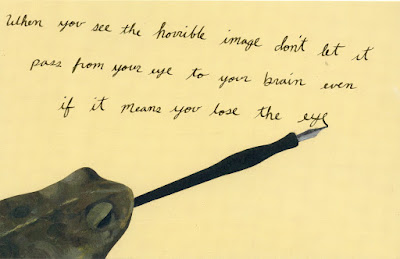 When you see the horrible image don't let it
pass from your eye to your brain even
if it means you lose the eye